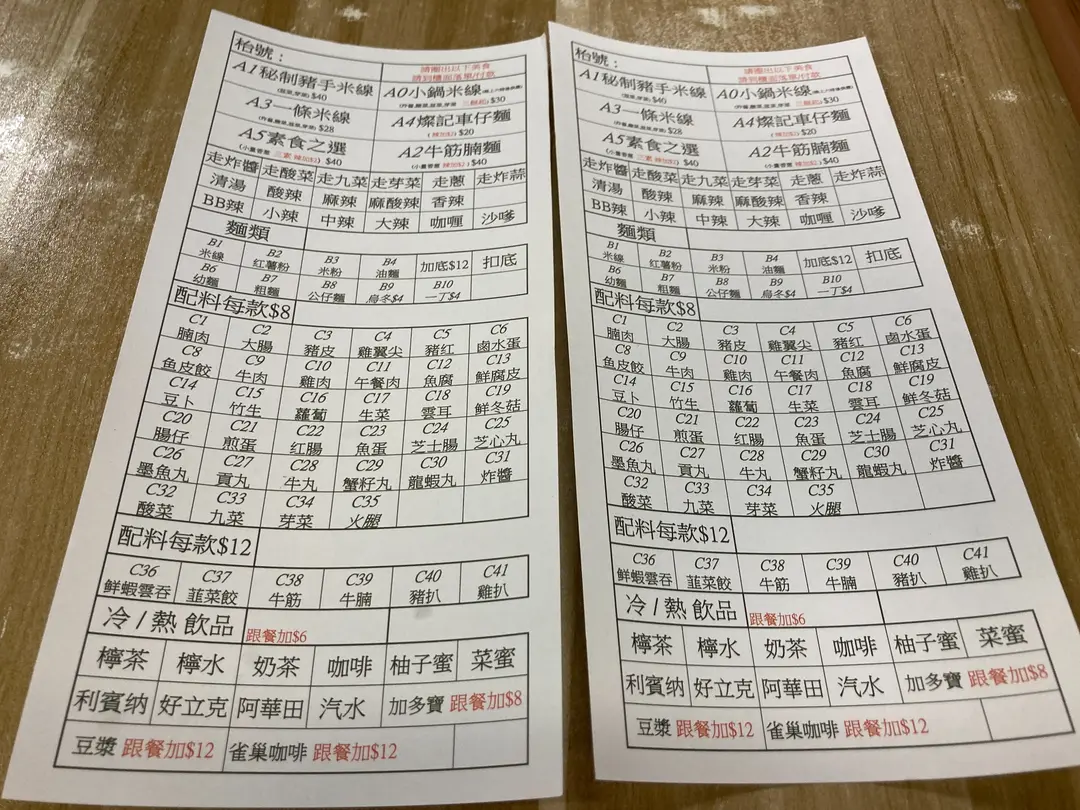 枱號：
請圈出以下美食
請到櫃面落單/付款
A1秘制豬手米線 A0小鍋米線
$40 三餸起 $30
A3一條米線 A4燦記車仔麵
$28 (辣加$2) $20
A5素食之選 A2牛筋腩麵
三素 辣加$2 $40 辣加$2 $40
走炸醬 走酸菜 走九菜 走芽菜 走蔥 走炸蒜
清湯 酸辣 麻辣 麻酸辣 香辣
BB辣 小辣 中辣 大辣 咖喱 沙嗲
麵類
B1 B2 B3 B4
米線 紅薯粉 米粉 油麵 加底$12 扣底
B6 B7 B8 B9 B10
幼麵 粗麵 公仔麵 烏冬$4 一丁$4
配料每款$8
C1 C2 C3 C4 C5 C6
腩肉 大腸 豬皮 雞翼尖 豬红 鹵水蛋
C8 C9 C10 C11 C12 C13
鱼皮餃 牛肉 雞肉 午餐肉 魚腐 鮮腐皮
C14 C15 C16 C17 C18 C19
豆卜 竹生 蘿蔔 生菜 雲耳 鮮冬菇
C20 C21 C22 C23 C24 C25
腸仔 煎蛋 红腸 魚蛋 芝士腸 芝心丸
C26 C27 C28 C29 C30 C31
墨魚丸 貢丸 牛丸 蟹籽丸 龍蝦丸 炸醬
C32 C33 C34 C35
酸菜 九菜 芽菜 火腿
配料每款$12
C36 C37 C38 C39 C40 C41
鮮蝦雲吞 韮菜餃 牛筋 牛腩 豬扒 雞扒
冷 / 熱 飲品 跟餐加$6
檸茶 檸水 奶茶 咖啡 柚子蜜 菜蜜
利賓纳 好立克 阿華田 汽水 加多寶 跟餐加$8
豆漿 跟餐加$12 雀巢咖啡 跟餐加$12
枱號：
請圈出以下美食
請到櫃面落單/付款
A1秘制豬手米線 A0小鍋米線
$40 三餸起 $30
A3一條米線 A4燦記車仔麵
$28 (辣加$2) $20
A5素食之選 A2牛筋腩麵
三素 辣加$2 $40 辣加$2 $40
走炸醬 走酸菜 走九菜 走芽菜 走蔥 走炸蒜
清湯 酸辣 麻辣 麻酸辣 香辣
BB辣 小辣 中辣 大辣 咖喱 沙嗲
麵類
B1 B2 B3 B4
米線 紅薯粉 米粉 油麵 加底$12 扣底
B6 B7 B8 B9 B10
幼麵 粗麵 公仔麵 烏冬$4 一丁$4
配料每款$8
C1 C2 C3 C4 C5 C6
腩肉 大腸 豬皮 雞翼尖 豬红 鹵水蛋
C8 C9 C10 C11 C12 C13
鱼皮餃 牛肉 雞肉 午餐肉 魚腐 鮮腐皮
C14 C15 C16 C17 C18 C19
豆卜 竹生 蘿蔔 生菜 雲耳 鮮冬菇
C20 C21 C22 C23 C24 C25
腸仔 煎蛋 红腸 魚蛋 芝士腸 芝心丸
C26 C27 C28 C29 C30 C31
墨魚丸 貢丸 牛丸 蟹籽丸 龍蝦丸 炸醬
C32 C33 C34 C35
酸菜 九菜 芽菜 火腿
配料每款$12
C36 C37 C38 C39 C40 C41
鮮蝦雲吞 韮菜餃 牛筋 牛腩 豬扒 雞扒
冷 / 熱 飲品 跟餐加$6
檸茶 檸水 奶茶 咖啡 柚子蜜 菜蜜
利賓纳 好立克 阿華田 汽水 加多寶 跟餐加$8
豆漿 跟餐加$12 雀巢咖啡 跟餐加$12